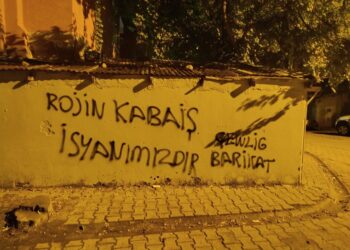 ROJIN KABAİŞ
İSYANIMIZDIR
BARİKAT